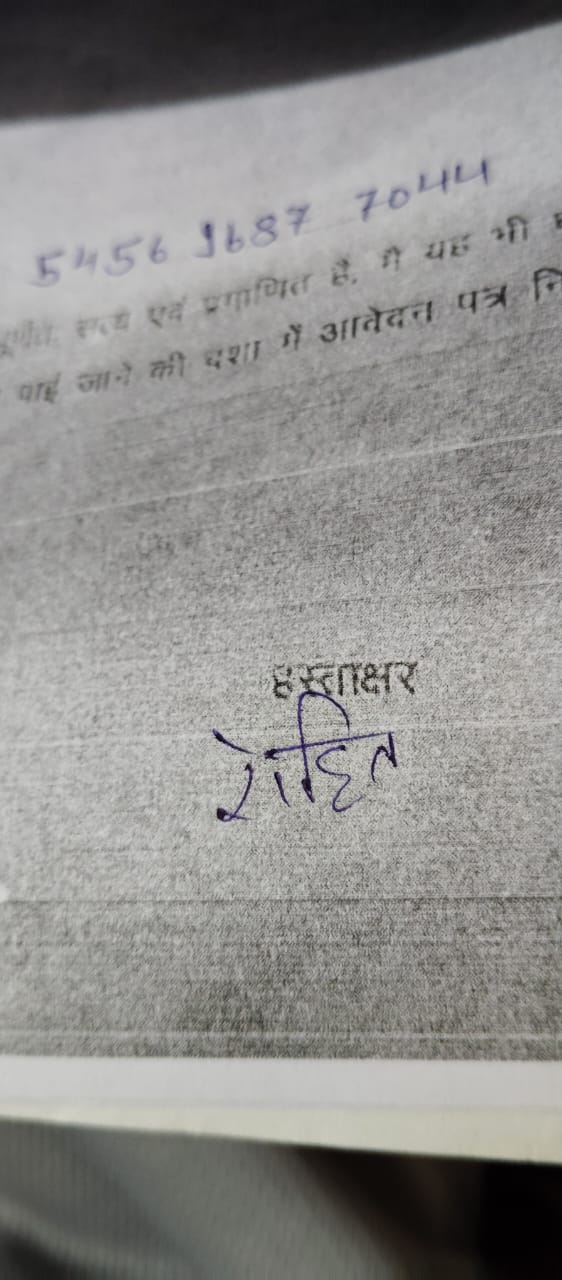 5456 9687 7044
सत्य एवं प्रमाणित है. मै यह भी
पाई जाने की दशा में आवेदन पत्र नि
हस्ताक्षर
रोहित